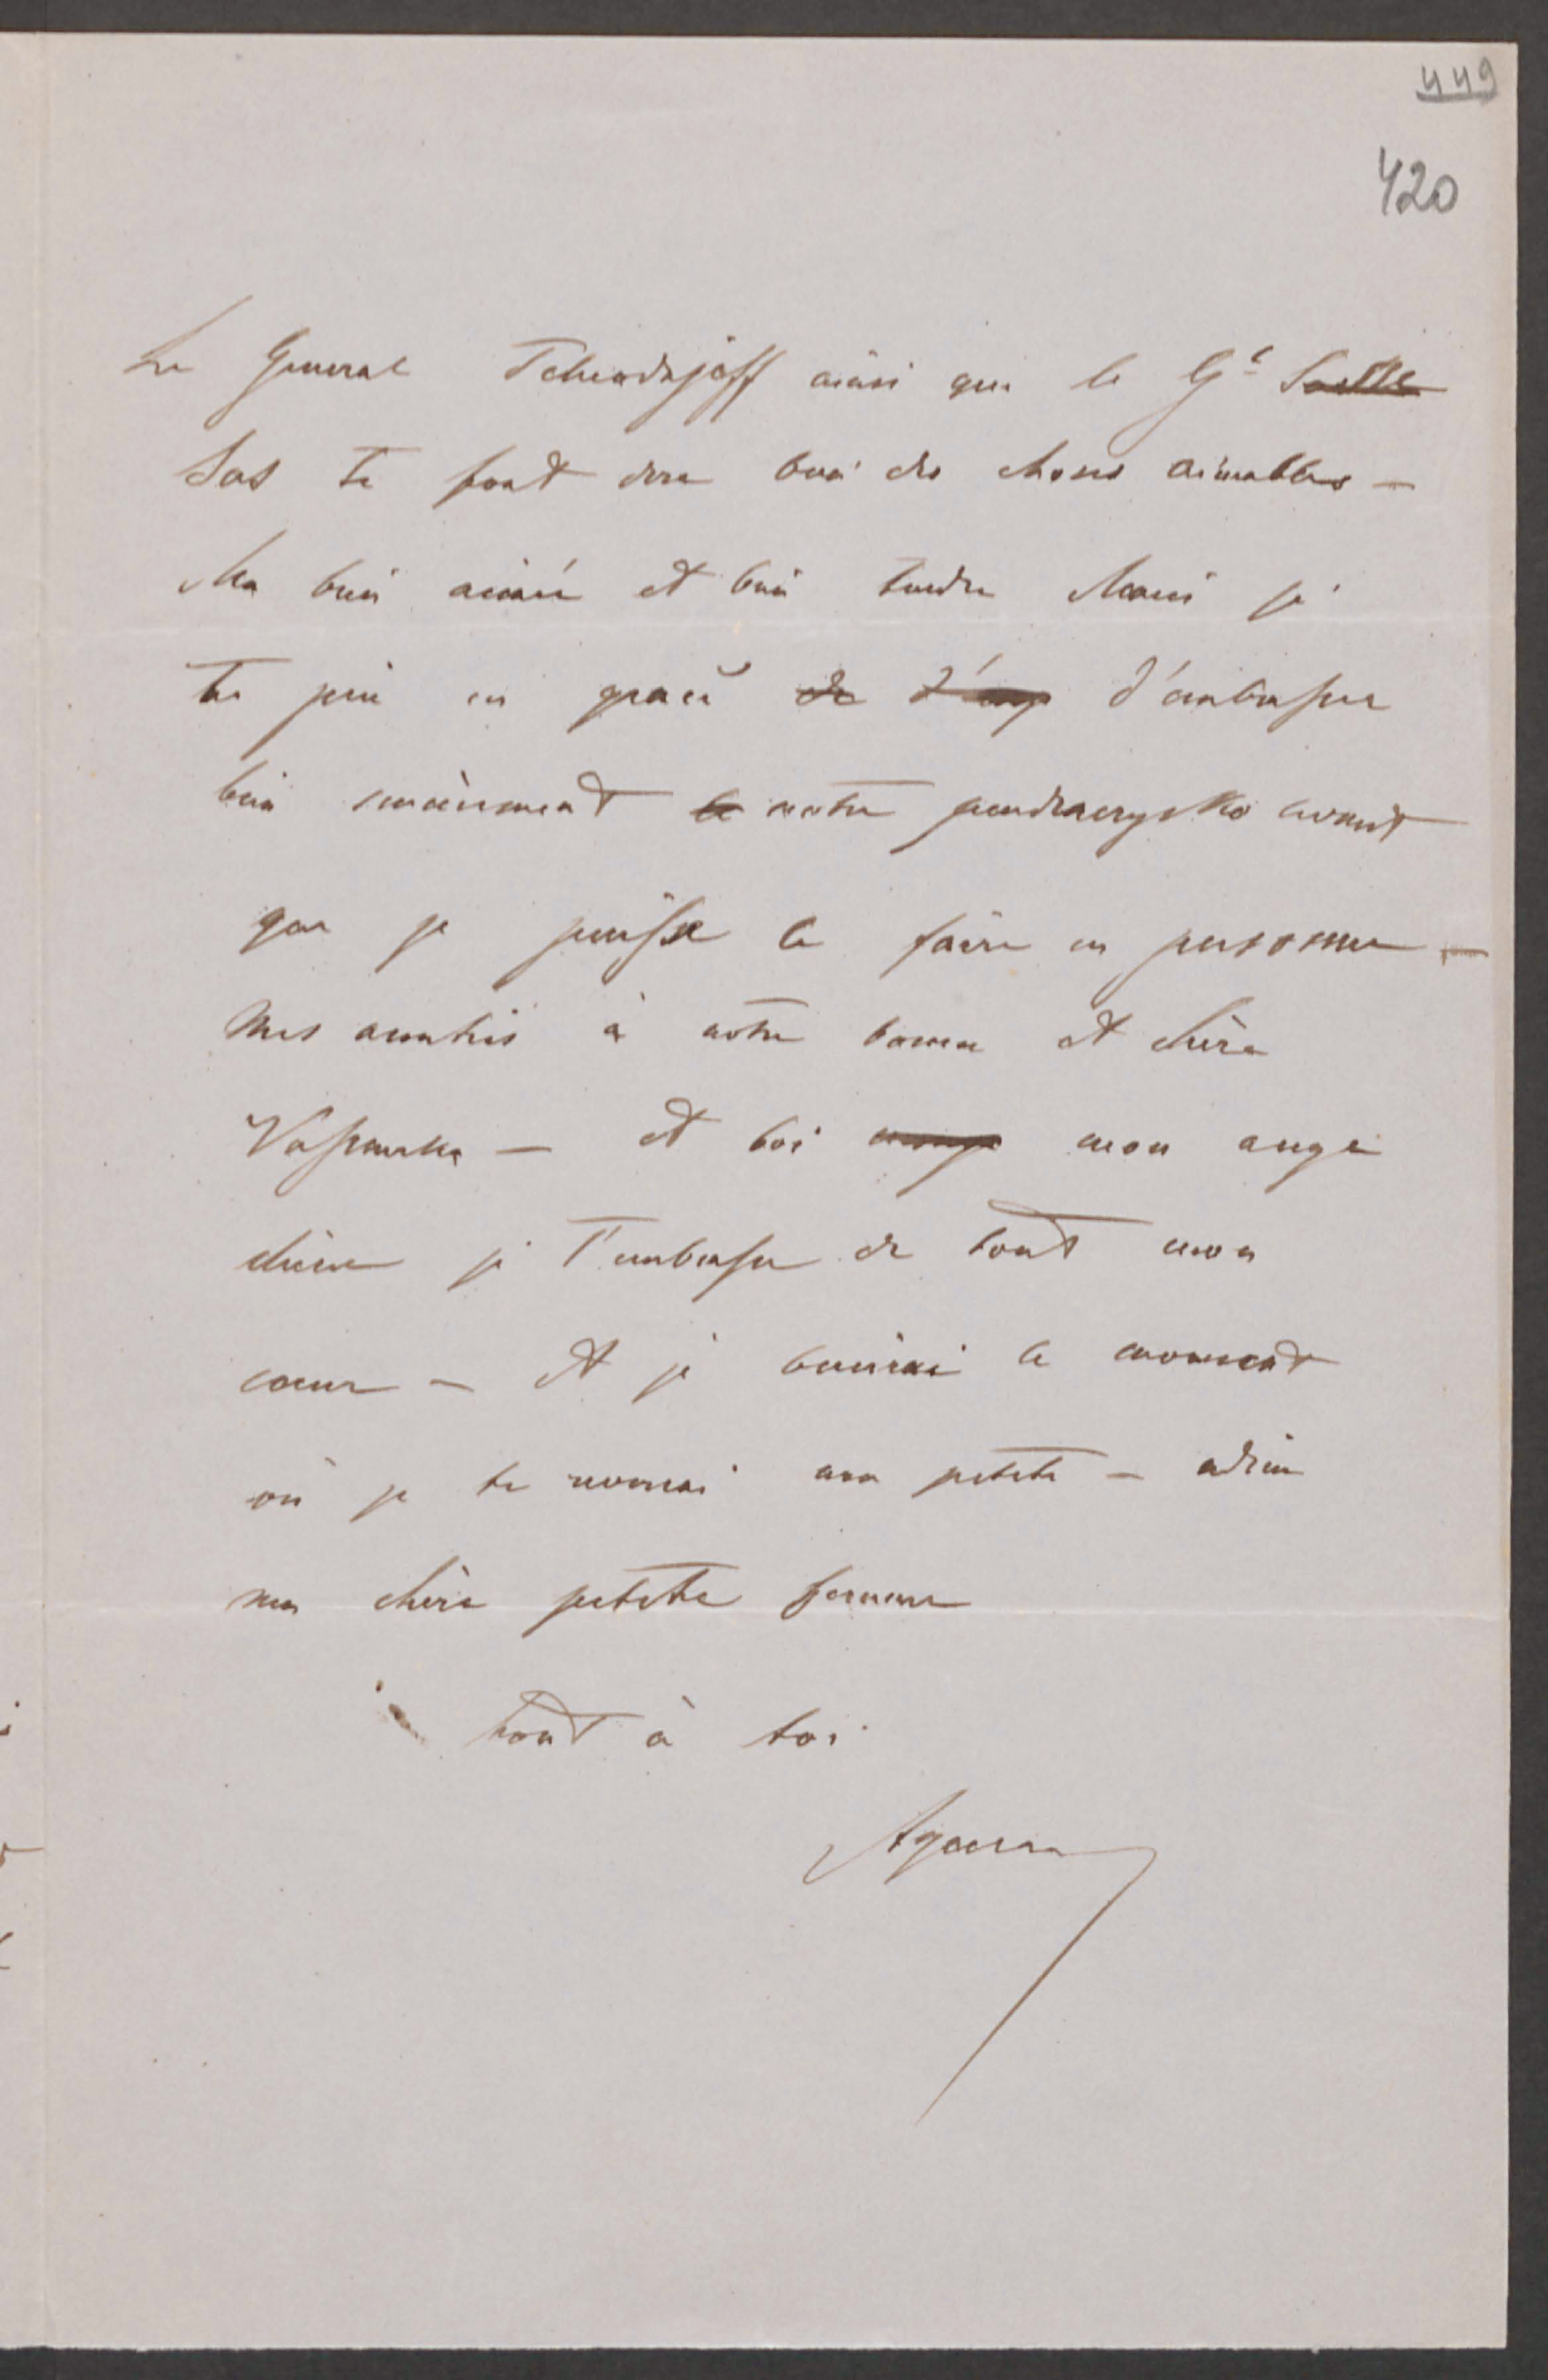 449
420
Le General Tcheodajeff ainsi que le Gal
Sas te font dire bien des choses aimables —
Ma bien aimée et bien tendre Marie je
te prie en grace de d'emp d'embrasser
bien tendrement le notre avant
que je puisse le faire en personne —
Mes amitiés à notre bonne et chère
Vassinska — et toi mon ange
chérie je t'embrasse de tout mon
coeur — et je benirai le moment
où je te reverrai ma petite — adieu
ma chère petite femme
tout à toi